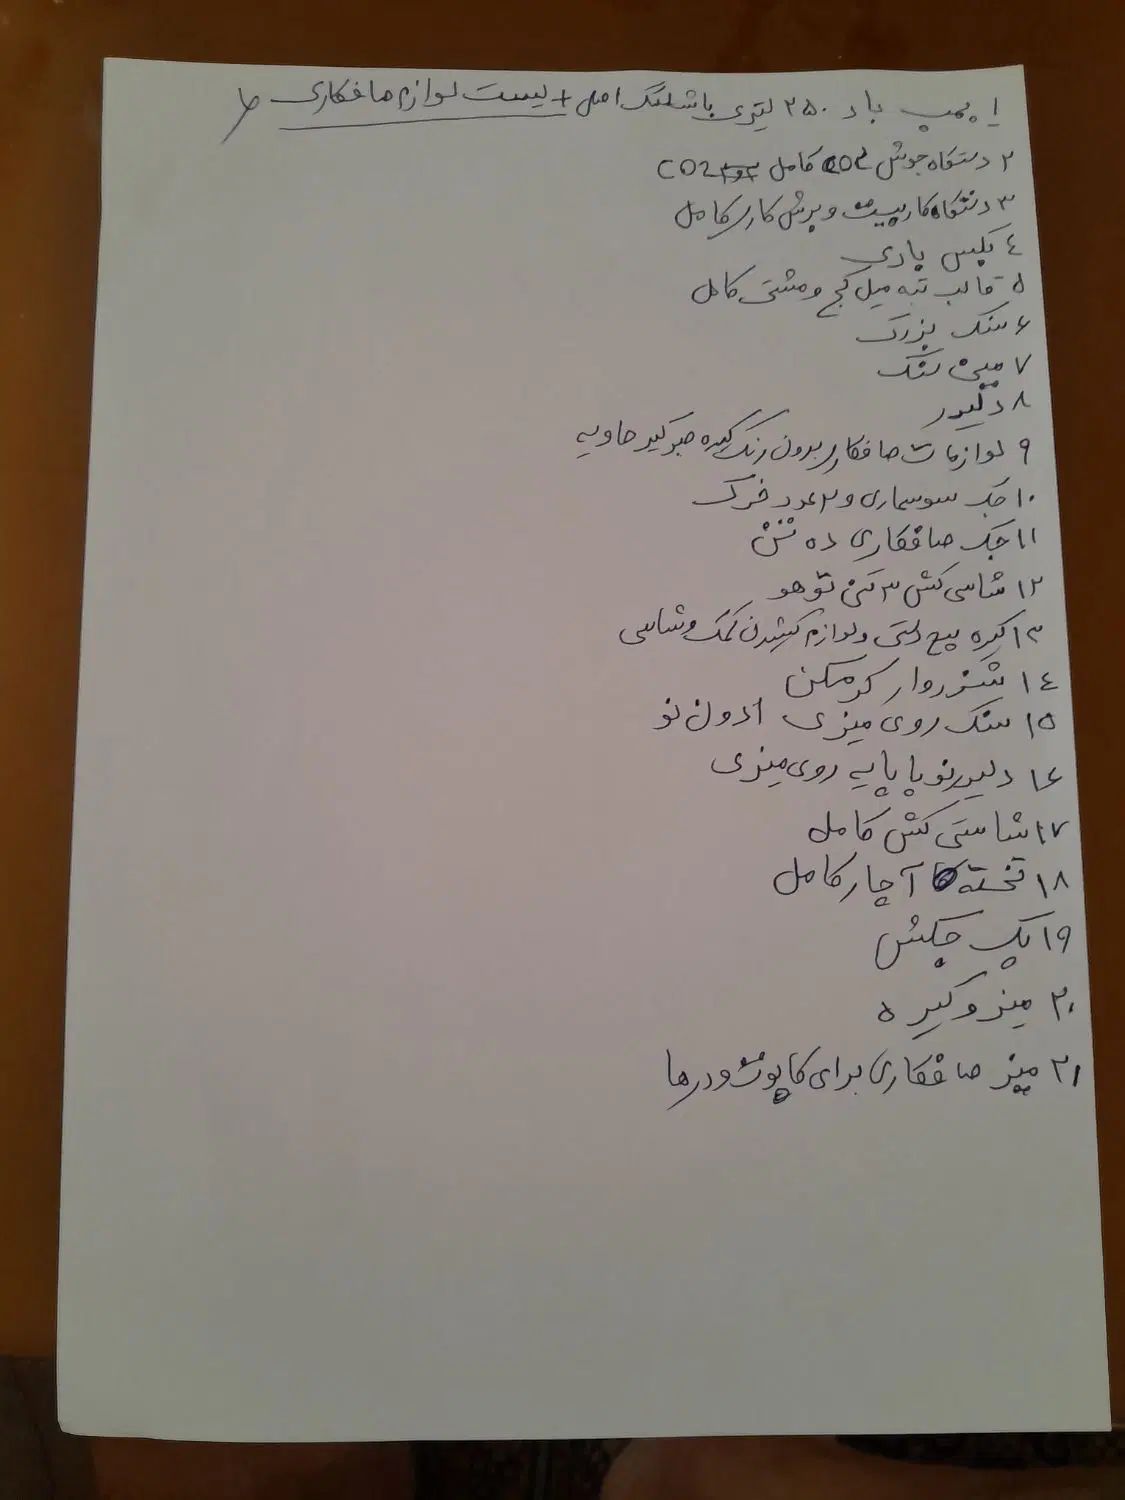 ۱ پمپ باد ۲۵۰ لیتری با شلنگ اصل + لیست لوازم صافکاری
۲ دستگاه جوش CO2 کامل CO2
۳ دستگاه کارپیت و برش کار کامل
٤ پلیس بادی
۵ قالب تبه میل کج و مشتی کامل
۶ سنگ بزرگ
۷ مینی سنگ
۸ دلیر
۹ لوازمات صافکاری بدون رنگ گیره صبرگیر حاویه
۱۰ جک سوسماری و ۲ عدد خرک
۱۱ جک صافکاری ده تنن
۱۲ شاسی کش ۳ تنی توهو
۱۳ گیره پیچ دستی و لوازم کشیدن کمک و شاسی
۱٤ شنروار کرمکن
۱۵ سنگ روی میزی ادون نو
۱۶ دلیر نو با پایه روی میزی
۱۷ شاستی کش کامل
۱۸ تخته آچار کامل
۱۹ پک چکش
۲۰ میز و گیره
۲۱ میز صافکاری برای کاپوت و درها